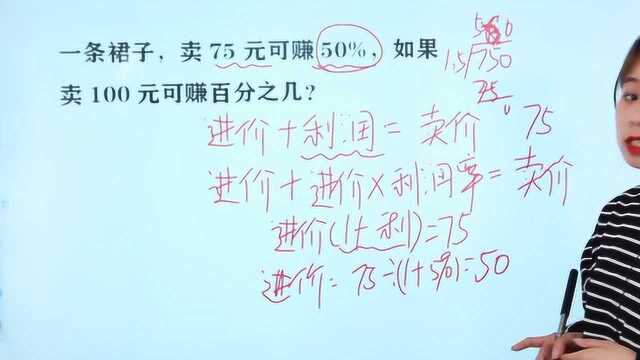 一条裙子，卖 75 元可赚 50%，如果
卖 100 元可赚百分之几？
进价+利润=卖价 75
进价+进价×利润率=卖价
进价(1+利)=75
进价=75÷(1+50%)=50
1.5 750
75
0